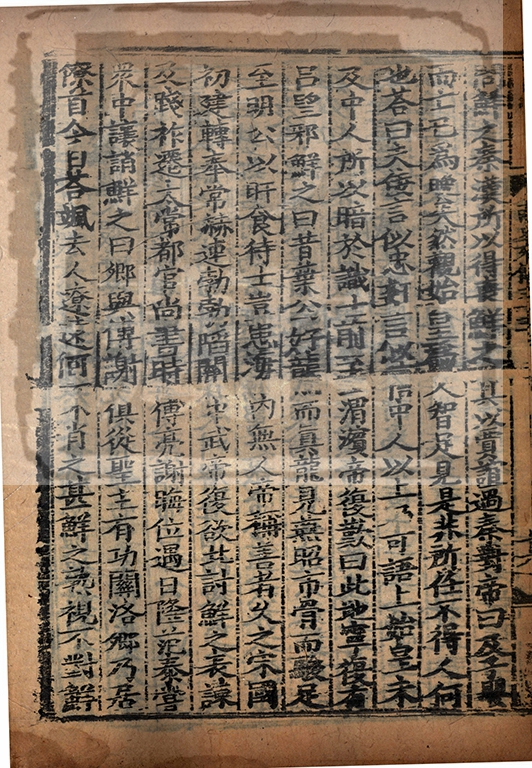 問鮮之秦漢所以得喪鮮之具以賈誼過秦對帝曰及子嬰
而亡已爲晚矣然觀始皇爲人智足見是非所任不得人何
也荅曰夫佞言似忠奸言似信中人以上乃可語上始皇未
及中人所以暗於識士前至渭濱帝復歎曰此地寧復有
呂望邪鮮之曰昔葉公好龍而真龍見燕昭市骨而駿足
至明公以旰食待士豈患海內無人帝稱善者久之宋國
初建轉奉常赫連勃勃陷關中武帝復欲北討鮮之表諫
及踐祚遷太常都官尚書時傅亮謝晦位遇日隆范泰嘗
衆中讓誚鮮之曰卿與傅謝俱從聖主有功關洛卿乃居
僚首今日荅颯去人遼遠何不肖之甚鮮之熟視不對鮮